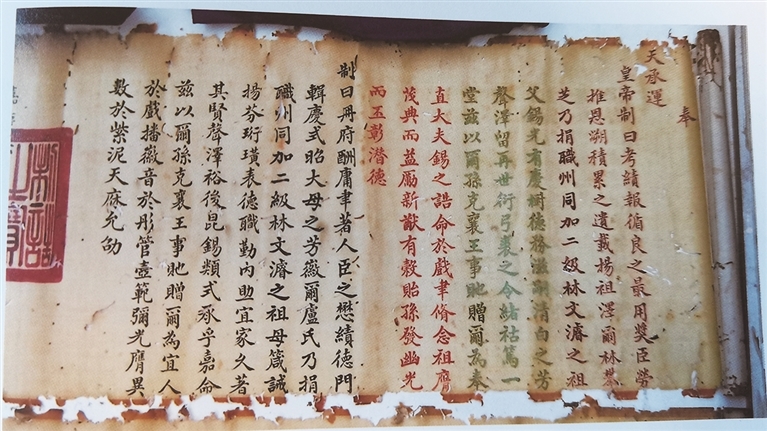 奉
天承運
皇帝制曰考績報循良之最用奬臣勞
推恩溯積累之遺載揚祖澤爾林
芝乃捐職州同加二級林文濬之祖
父錫光有慶樹德務滋嗣清白之芳
聲澤留再世衍弓裘之令緒祜篤一
堂茲以爾孫克襄王事貤贈爾為奉
直大夫錫之誥命於戲聿脩念祖膺
茂典而益勵新猷有穀貽孫發幽光
而丕彰潛德
制曰冊府酬庸聿著人臣之懋績德門
輯慶式昭大母之芳徽爾盧氏乃捐
職州同加二級林文濬之祖母箴誡
揚芬珩璜表德職勤內助宜家久著
其賢聲澤裕後昆錫類式承乎嘉命
茲以爾孫克襄王事貤贈爾為宜人
於戲播徽音於彤管壼範彌光膺異
數於紫泥天庥允劭